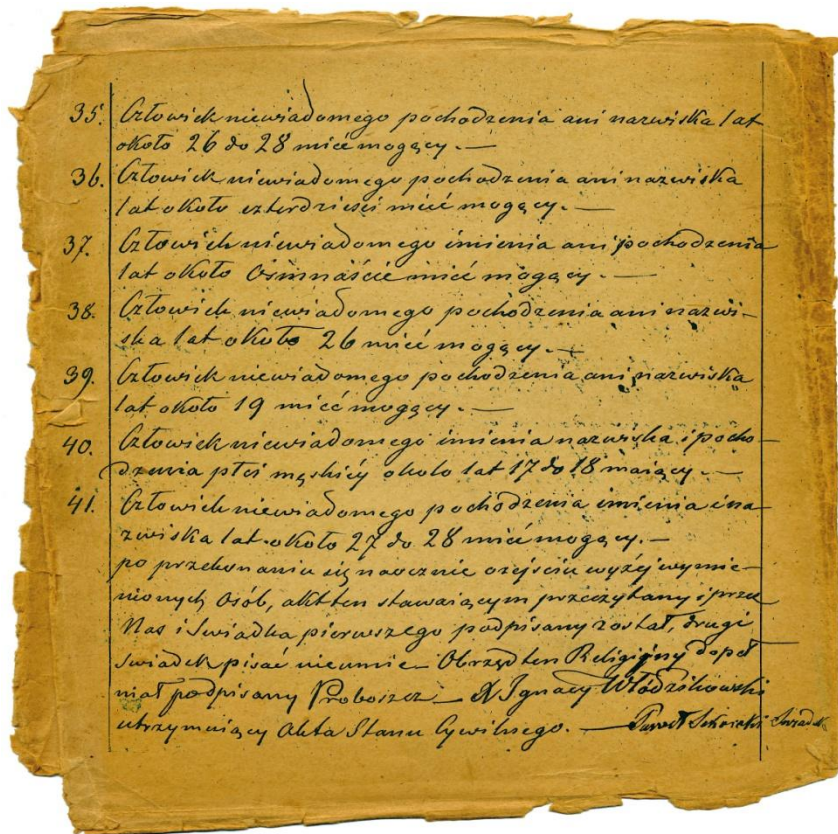 35. Człowiek niewiadomego pochodzenia ani nazwiska lat
około 26 do 28 mieć mogący. —
36. Człowiek niewiadomego pochodzenia ani nazwiska
lat około czterdzieści mieć mogący. —
37. Człowiek niewiadomego imienia ani pochodzenia
lat około Ośmnaście mieć mogący. —
38. Człowiek niewiadomego pochodzenia ani nazwi-
ska lat około 26 mieć mogący. —
39. Człowiek niewiadomego pochodzenia ani nazwiska
lat około 19 mieć mogący. —
40. Człowiek niewiadomego imienia nazwiska i pocho-
dzenia płci męskiéy około lat 17 do 18 maiący. —
41. Człowiek niewiadomego pochodzenia imienia i na-
zwiska lat około 27 do 28 mieć mogący. —
po przekonaniu się naocznie o zejściu wyżéj wymie-
nionych Osób, akt ten stawaiącym przeczytany i przez
Nas i Świadka pierwszego podpisany został, drugi
Świadek pisać nieumie — Obrzęd ten Religijny dopeł
niał podpisany Proboszcz — X Ignacy Włódzikowski
utrzymuiący Akta Stanu Cywilnego. — Paweł Świadek